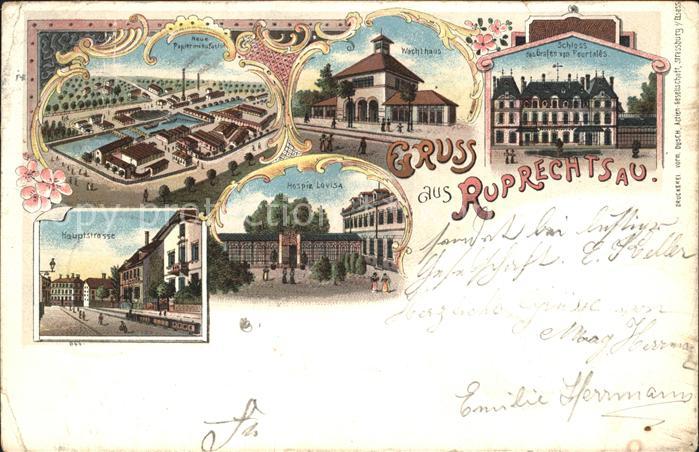 Neue
Papiermanufactur
Wachthaus
Schloss
des Grafen von Pourtalès
GRUSS
aus RUPRECHTSAU.
Hospiz Lovisa
Hauptstrasse
DRUCKEREI VORM. DUSCH, Actien-Gesellschaft, Strassburg i/Elsass
sendet bei lustiger
Gesellschaft. E. Heller
Herzliche Grüsse von
Mag Herrmann
Emilie Herrmann